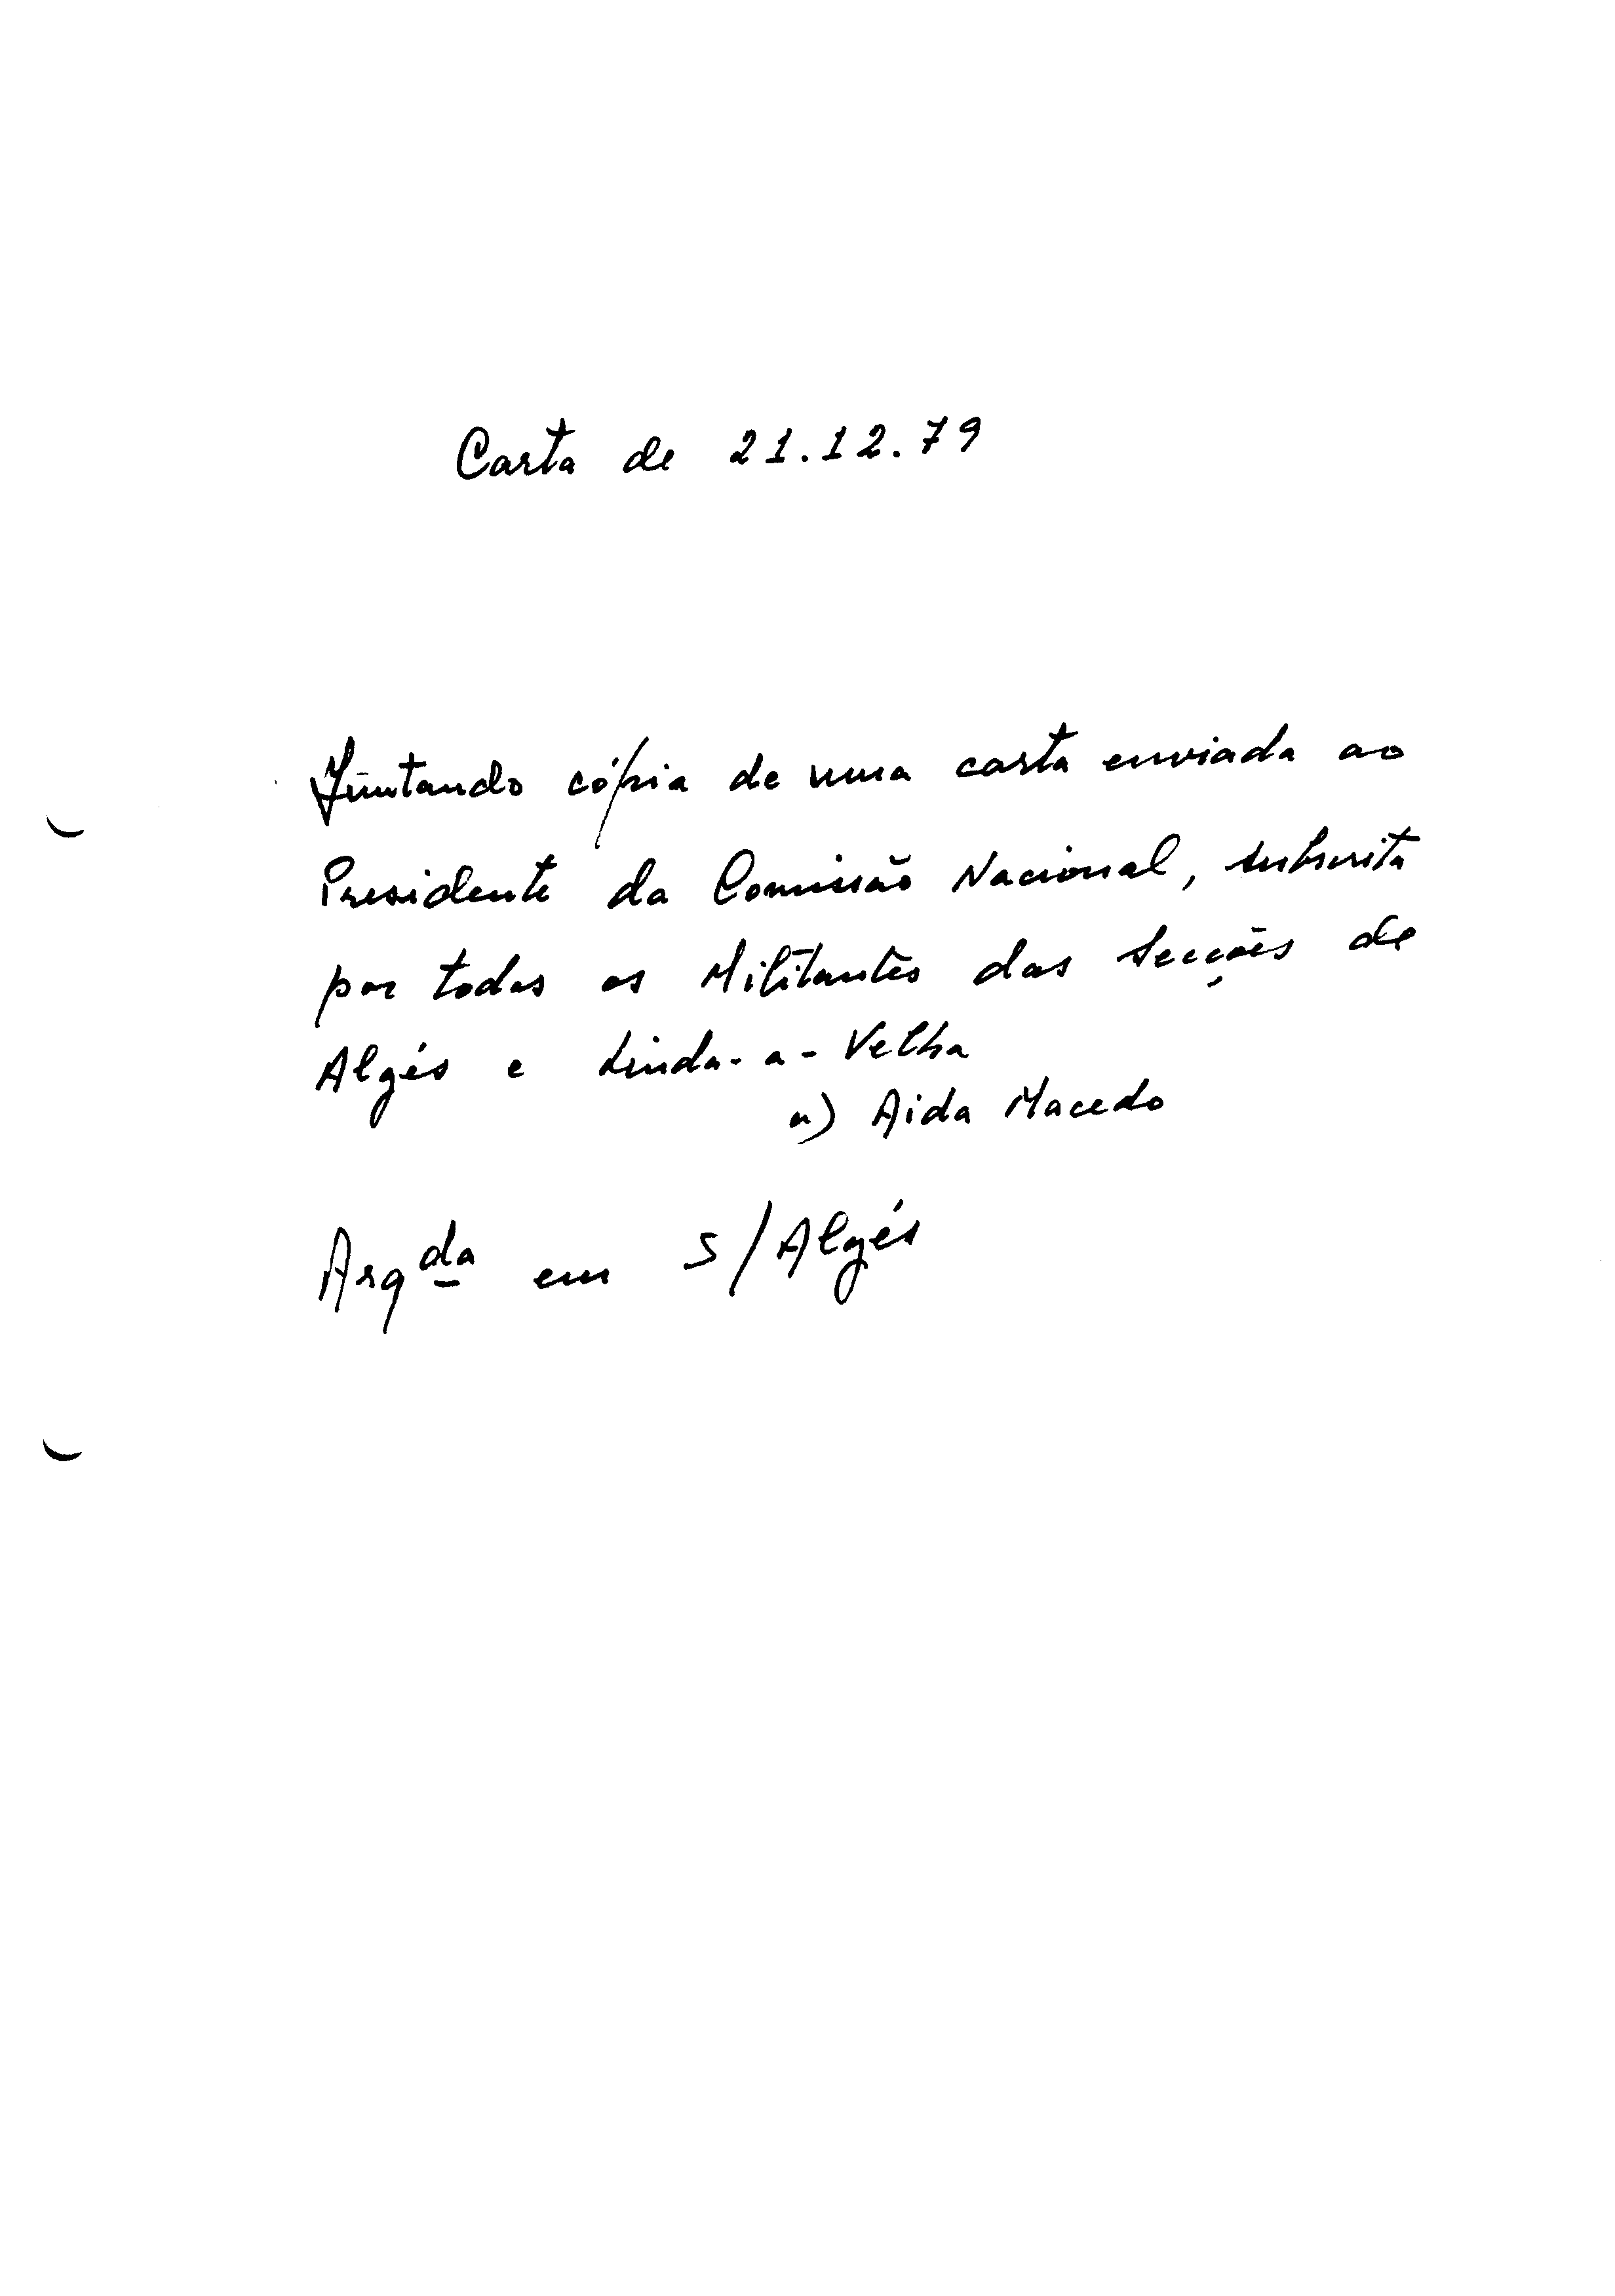 Carta de 21.12.79
Juntando cópia de uma carta enviada ao
Presidente da Comissão Nacional, subscrita
por todos os Militantes das Secções de
Algés e Linda-a-Velha
a) Aida Macedo
Arqda em S/Algés